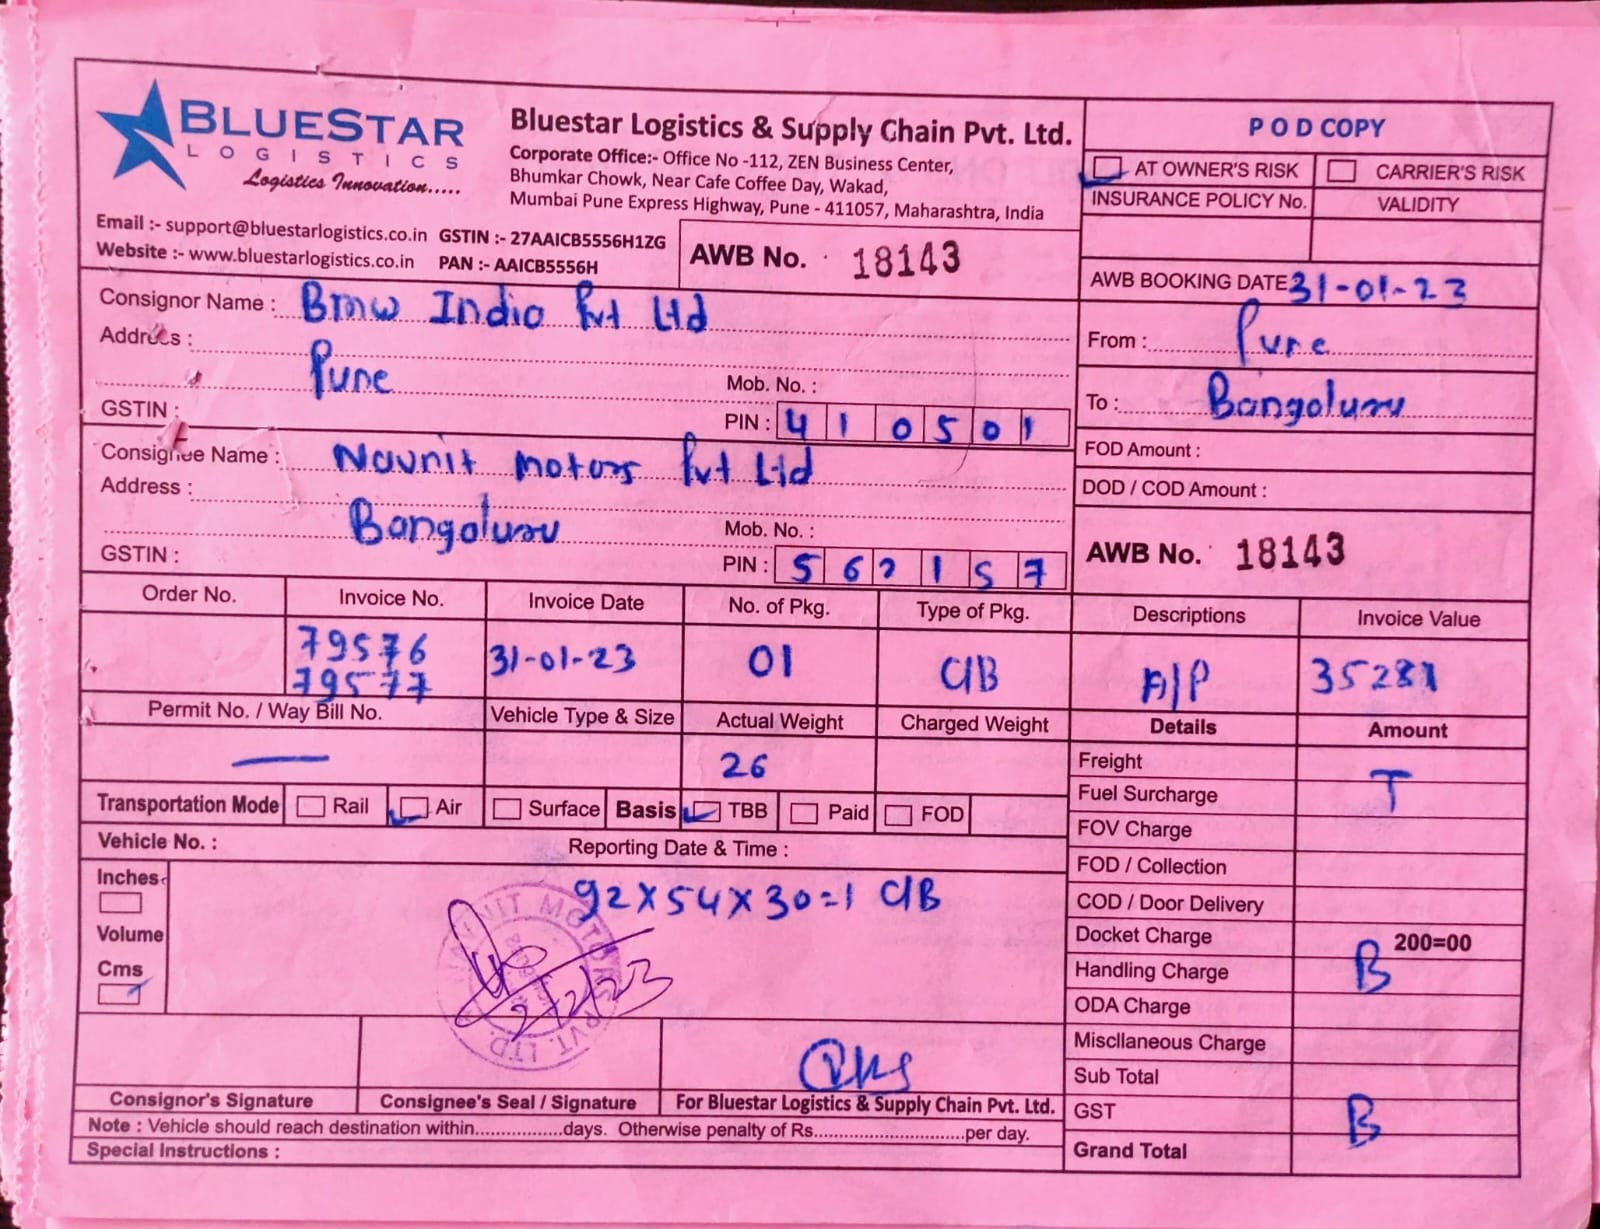 BLUESTAR
LOGISTICS
Logistics Innovation.....
Bluestar Logistics & Supply Chain Pvt. Ltd.
Corporate Office:- Office No -112, ZEN Business Center,
Bhumkar Chowk, Near Cafe Coffee Day, Wakad,
Mumbai Pune Express Highway, Pune - 411057, Maharashtra, India
Email :- support@bluestarlogistics.co.in GSTIN :- 27AAICB5556H1ZG
Website :- www.bluestarlogistics.co.in PAN :- AAICB5556H
AWB No. 18143
POD COPY
AT OWNER'S RISK CARRIER'S RISK
INSURANCE POLICY No. VALIDITY
AWB BOOKING DATE 31-01-23
Consignor Name : Bmw India Pvt Ltd
Address :
Pune
Mob. No. :
GSTIN :
PIN : 410501
From : Pune
To : Bangaluru
Consignee Name : Navnit motors Pvt Ltd
Address :
Bangaluru
Mob. No. :
GSTIN :
PIN : 562157
FOD Amount :
DOD / COD Amount :
AWB No. 18143
Order No. Invoice No. Invoice Date No. of Pkg. Type of Pkg. Descriptions Invoice Value
79576 31-01-23 01 C/B A/P 35281
79577
Permit No. / Way Bill No. Vehicle Type & Size Actual Weight Charged Weight Details Amount
— 26
Transportation Mode Rail Air Surface Basis TBB Paid FOD
Vehicle No. : Reporting Date & Time :
Inches
Volume
Cms
92X54X30=1 C/B
NAVNIT MOTORS PVT. LTD.
2/2/23
Freight
Fuel Surcharge T
FOV Charge
FOD / Collection
COD / Door Delivery
Docket Charge 200=00
Handling Charge B
ODA Charge
Miscllaneous Charge
Sub Total
GST B
Grand Total
Consignor's Signature Consignee's Seal / Signature For Bluestar Logistics & Supply Chain Pvt. Ltd.
Note : Vehicle should reach destination within.................days. Otherwise penalty of Rs.............................per day.
Special Instructions :